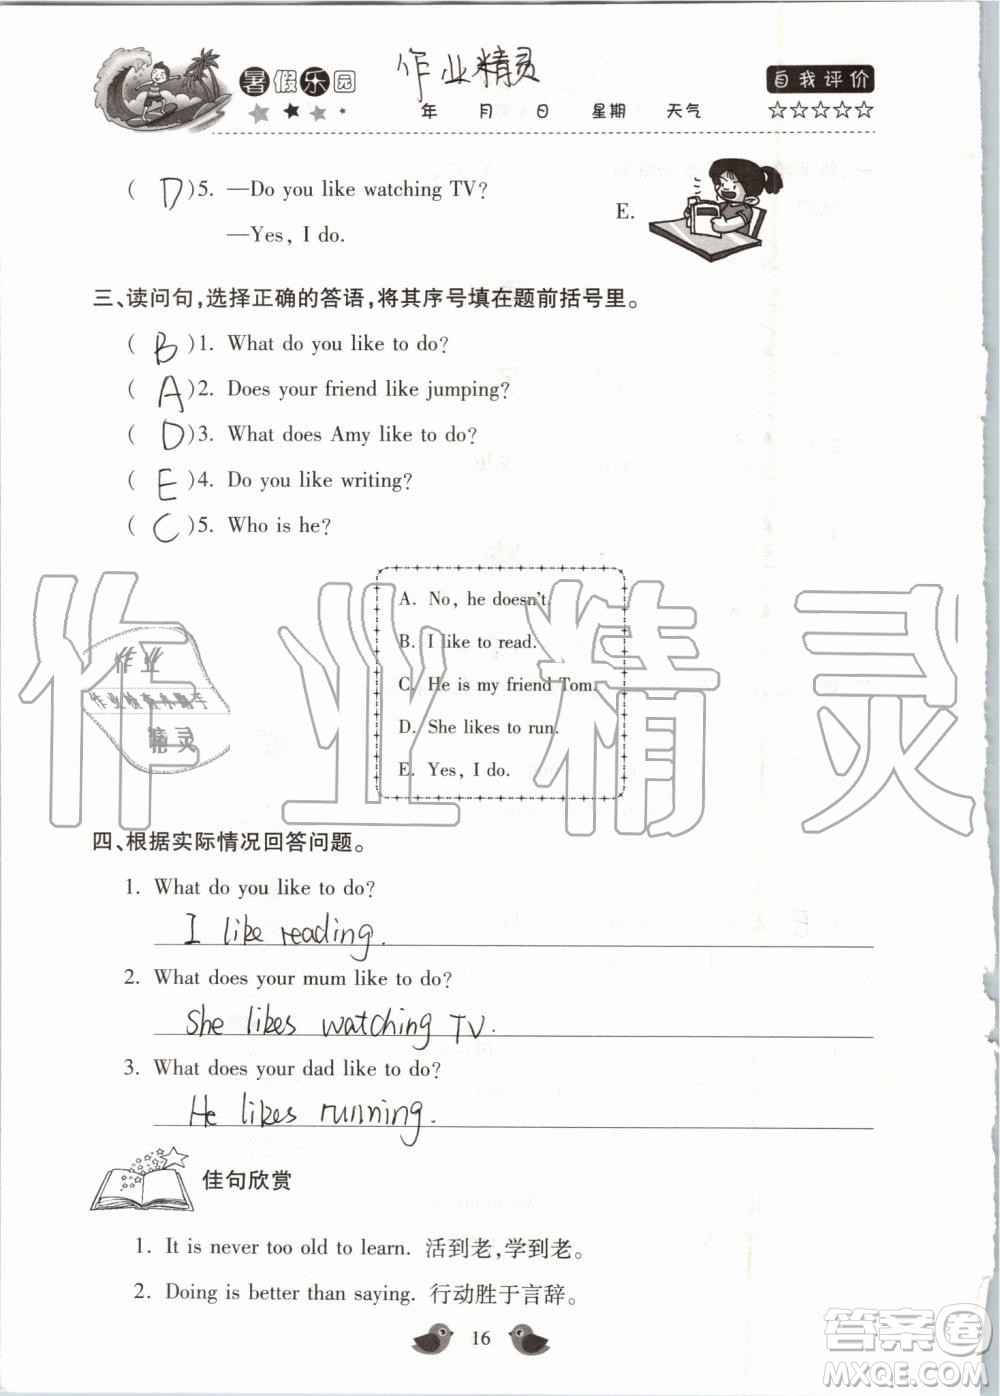 暑假乐园
作业精灵
年 月 日 星期 天气
自我评价
☆☆☆☆☆
( D )5. —Do you like watching TV?
—Yes, I do.
E.
三、读问句,选择正确的答语,将其序号填在题前括号里。
( B )1. What do you like to do?
( A )2. Does your friend like jumping?
( D )3. What does Amy like to do?
( E )4. Do you like writing?
( C )5. Who is he?
A. No, he doesn't.
B. I like to read.
C. He is my friend Tom.
D. She likes to run.
E. Yes, I do.
作业精灵
作业
作业检查小助手
精灵
四、根据实际情况回答问题。
1. What do you like to do?
I like reading.
2. What does your mum like to do?
She likes watching TV.
3. What does your dad like to do?
He likes running.
佳句欣赏
1. It is never too old to learn. 活到老,学到老。
2. Doing is better than saying. 行动胜于言辞。
16
答案圈
MXQE.COM